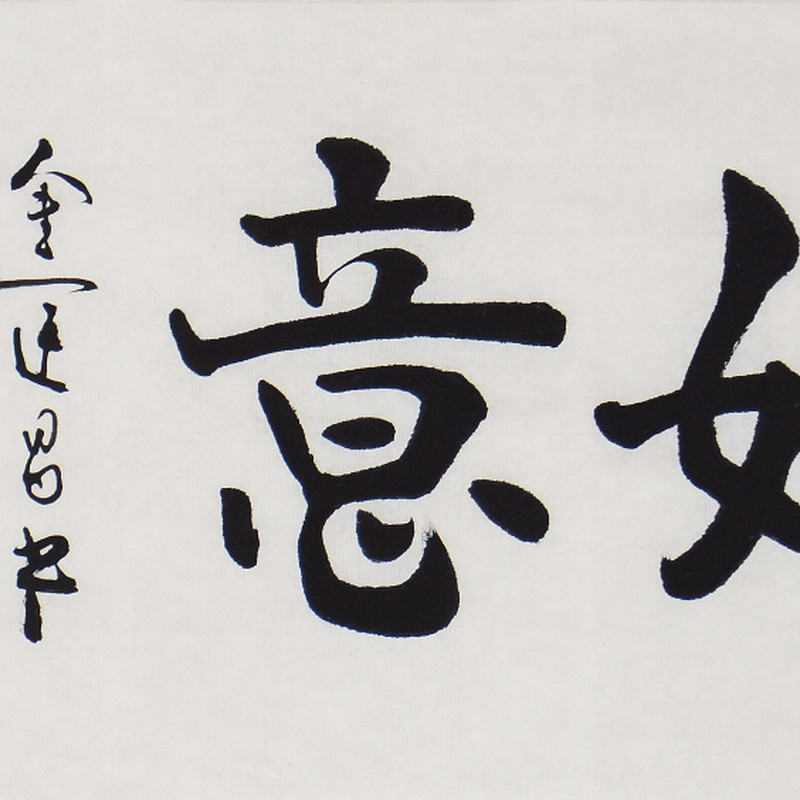 意
金运昌书